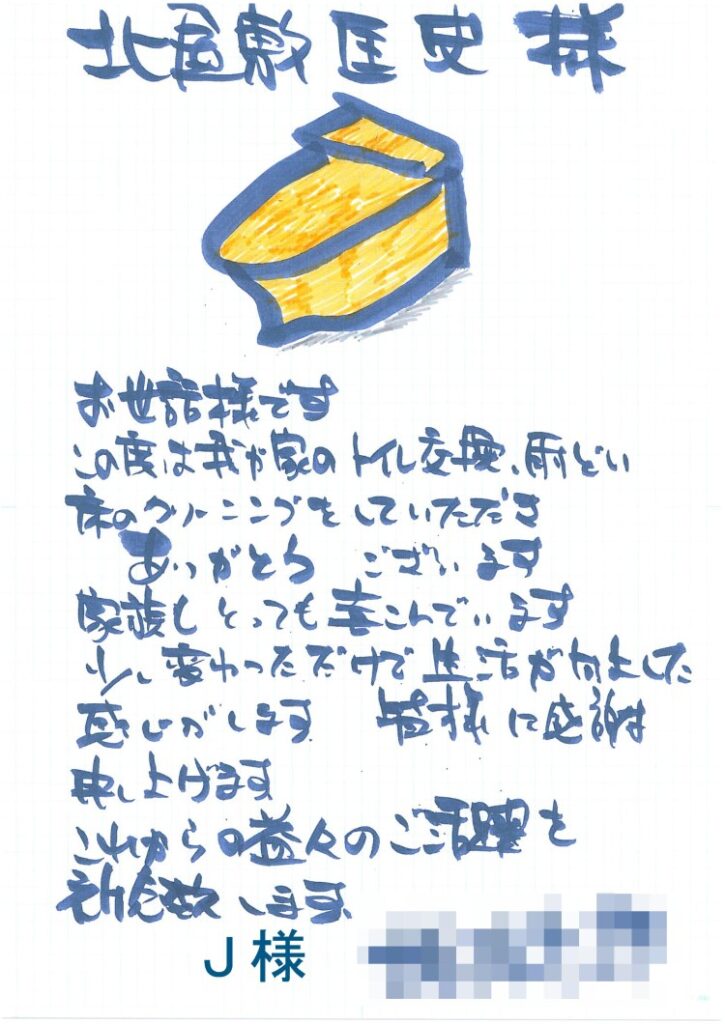 北屋敷匡史様
お世話様です
この度は我が家のトイレ交換、雨どい
床のクリーニングをしていただき
ありがとう ございます
家族もとっても喜こんでいます
少し変わっただけで生活が向上した
感じがします 皆様に感謝
申し上げます
これからの益々のご活躍を
します
J様